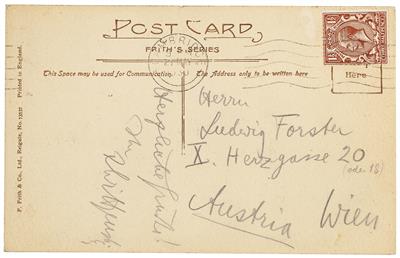 POST CARD
FRITH'S SERIES
This Space may be used for Communication.
The Address only to be written here
Here
Printed in England.
F. Frith & Co., Ltd., Reigate, No.
Herzliche Grüße!
Ihr
Herrn
Ludwig Forster
X. Herzgasse 20
(oder 18)
Austria Wien